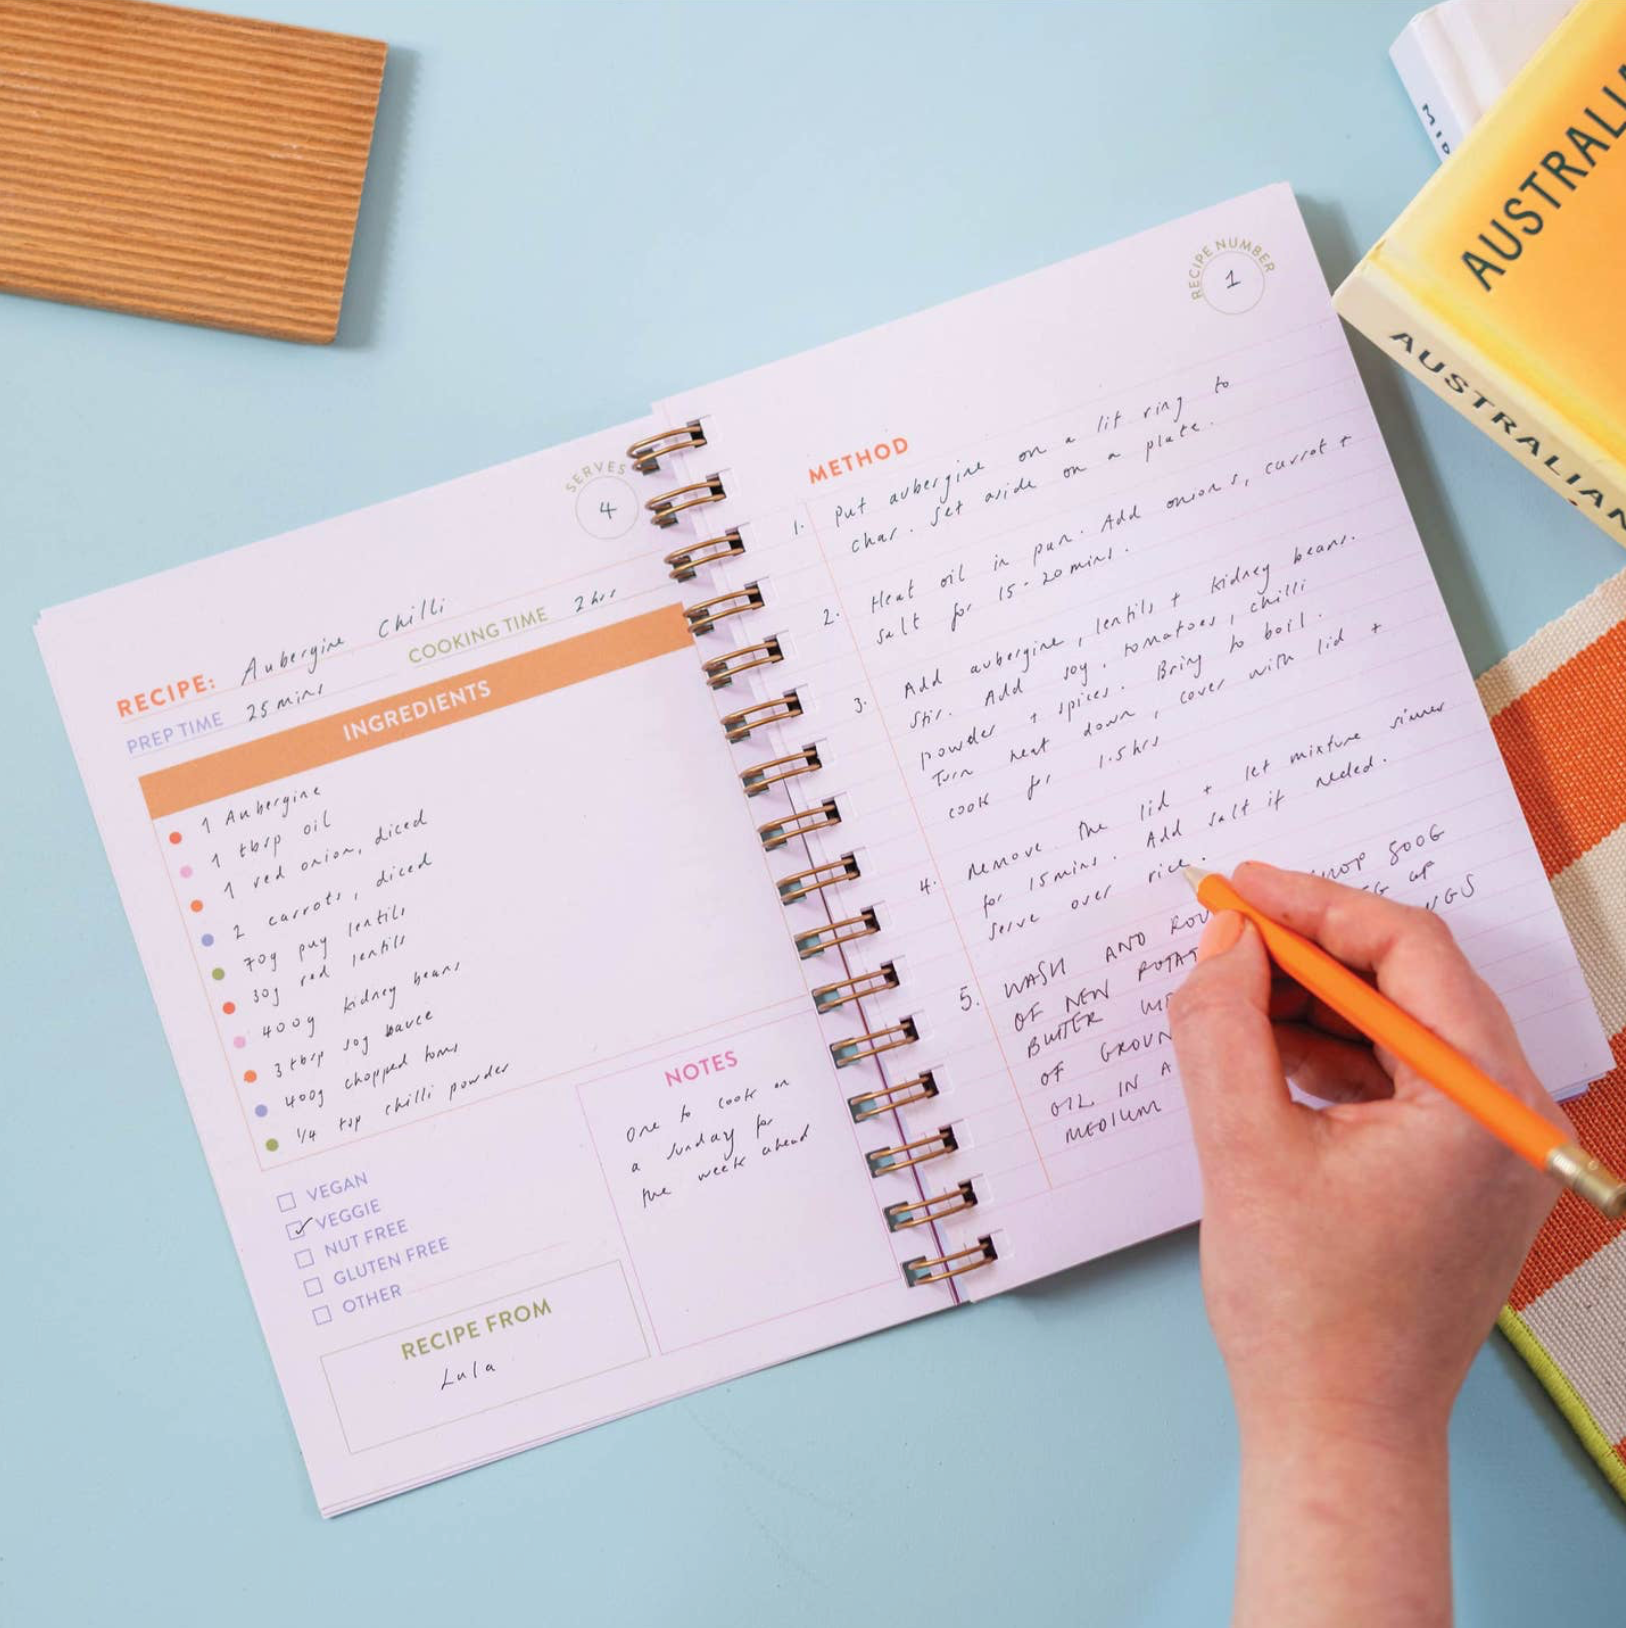 SERVES
4
RECIPE: Aubergine Chilli
PREP TIME 25 mins COOKING TIME 2 hrs
INGREDIENTS
1 Aubergine
1 tbsp oil
1 red onion, diced
2 carrots, diced
70g puy lentils
30g red lentils
400g kidney beans
3 tbsp soy sauce
400g chopped toms
1/4 tsp chilli powder
VEGAN
VEGGIE
NUT FREE
GLUTEN FREE
OTHER
RECIPE FROM
Lula
NOTES
One to cook on
a Sunday for
the week ahead
RECIPE NUMBER
1
METHOD
1. Put aubergine on a lit ring to
char. Set aside on a plate.
2. Heat oil in pan. Add onions, carrot +
salt for 15-20 mins.
3. Add aubergine, lentils + kidney beans.
Stir. Add soy, tomatoes, chilli
powder + spices. Bring to boil.
Turn heat down, cover with lid +
cook for 1.5 hrs
4. Remove the lid + let mixture simmer
for 15 mins. Add salt if needed.
Serve over rice.
5. WASH AND 500G
OF NEW UP
BUTTER
OF
OIL IN A
MEDIUM
AUSTRALIA
AUSTRALIAN